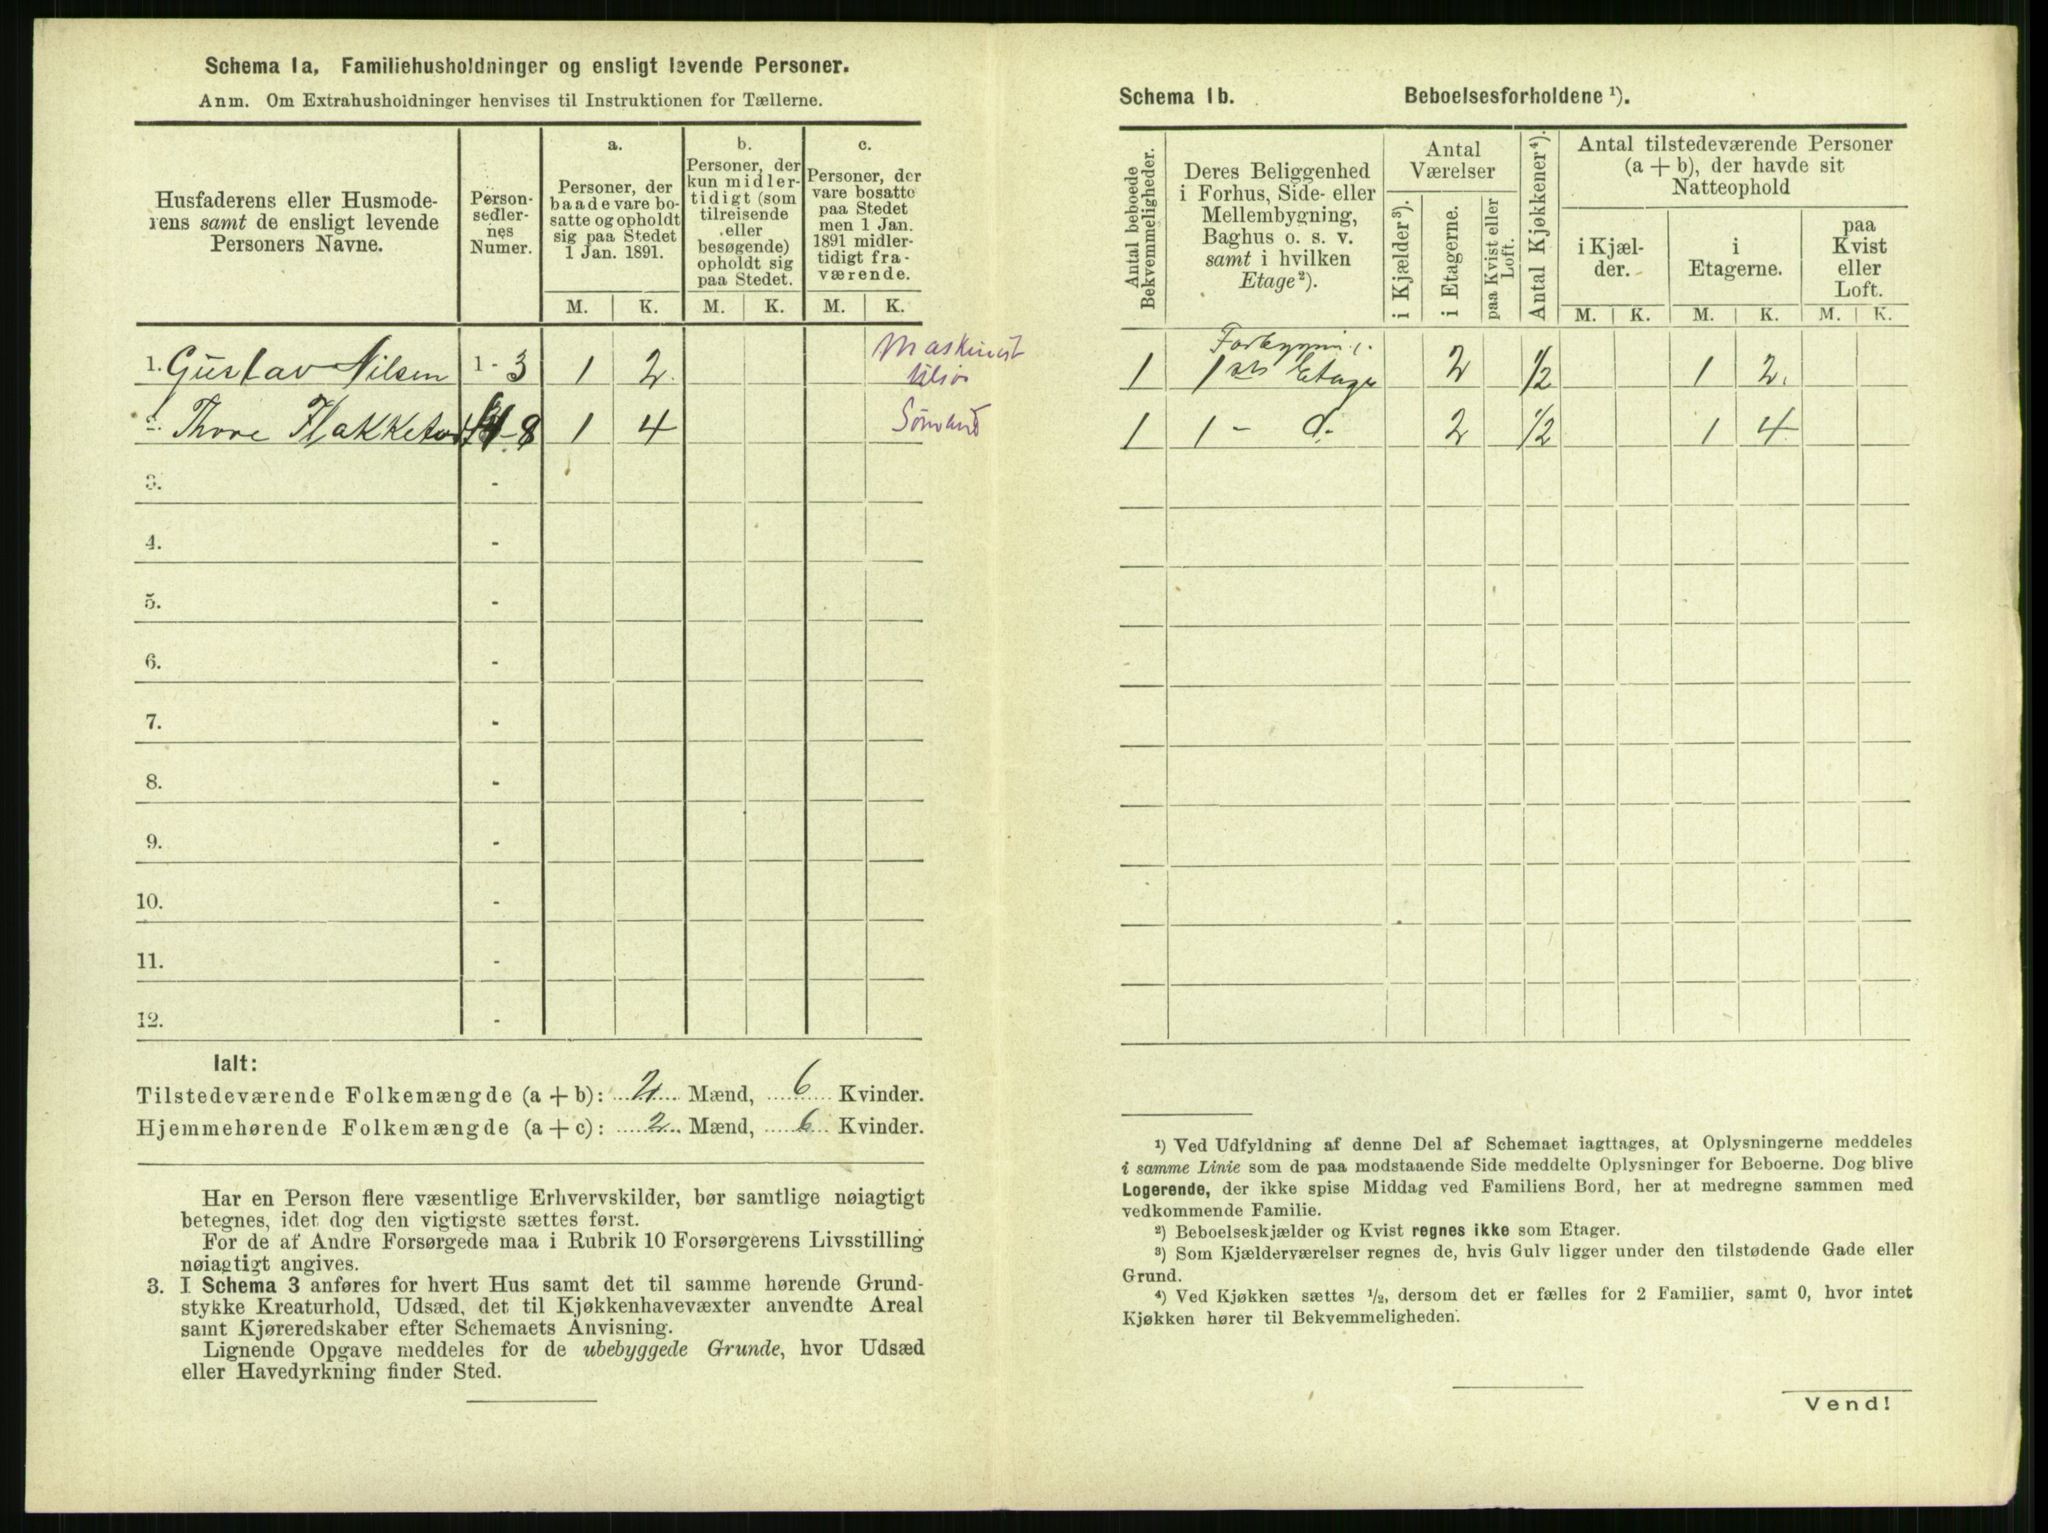 Schema 1a, Familiehusholdninger og ensligt levende Personer.
Anm. Om Extrahusholdninger henvises til Instruktionen for Tællerne.
Husfaderens eller Husmode-
rens samt de ensligt levende
Personers Navne.
Person-
sedler-
nes
Numer.
a.
Personer, der
baade vare bo-
satte og opholdt
sig paa Stedet
1 Jan. 1891.
b.
Personer, der
kun midler-
tidigt (som
tilreisende
eller
besøgende)
opholdt sig
paa Stedet.
c.
Personer, der
vare bosatte
paa Stedet
men 1 Jan.
1891 midler-
tidigt fra-
værende.
M. K. M. K. M. K.
1. Gustav Nilsen 1 - 3 1 2 Maskinist
Thore - 8 1 4 Sömand
3. -
4. -
5. -
6. -
7. -
8. -
9. -
10. -
11. -
12. -
Ialt:
Tilstedeværende Folkemængde (a + b): 2 Mænd, 6 Kvinder.
Hjemmehørende Folkemængde (a + c): 2 Mænd, 6 Kvinder.
Har en Person flere væsentlige Erhvervskilder, bør samtlige nøiagtigt
betegnes, idet dog den vigtigste sættes først.
For de af Andre Forsørgede maa i Rubrik 10 Forsørgerens Livsstilling
nøiagtigt angives.
3. I Schema 3 anføres for hvert Hus samt det til samme hørende Grund-
stykke Kreaturhold, Udsæd, det til Kjøkkenhavevæxter anvendte Areal
samt Kjøreredskaber efter Schemaets Anvisning.
Lignende Opgave meddeles for de ubebyggede Grunde, hvor Udsæd
eller Havedyrkning finder Sted.
Schema 1b. Beboelsesforholdene ¹).
Antal beboede
Bekvemmeligheder.
Deres Beliggenhed
i Forhus, Side- eller
Mellembygning,
Baghus o. s. v.
samt i hvilken
Etage ²).
Antal
Værelser
i Kjælder ³).
i Etagerne.
paa Kvist eller
Loft.
Antal Kjøkkener ⁴).
Antal tilstedeværende Personer
(a + b), der havde sit
Natteophold
i Kjæl-
der.
i
Etagerne.
paa
Kvist
eller
Loft.
M. K. M. K. M. K.
1 1ste Etage 2 1/2 1 2.
1 1 - d. 2 1/2 1 4
¹) Ved Udfyldning af denne Del af Schemaet iagttages, at Oplysningerne meddeles
i samme Linie som de paa modstaaende Side meddelte Oplysninger for Beboerne. Dog blive
Logerende, der ikke spise Middag ved Familiens Bord, her at medregne sammen med
vedkommende Familie.
²) Beboelseskjælder og Kvist regnes ikke som Etager.
³) Som Kjælderværelser regnes de, hvis Gulv ligger under den tilstødende Gade eller
Grund.
⁴) Ved Kjøkken sættes ½, dersom det er fælles for 2 Familier, samt 0, hvor intet
Kjøkken hører til Bekvemmeligheden.
Vend!